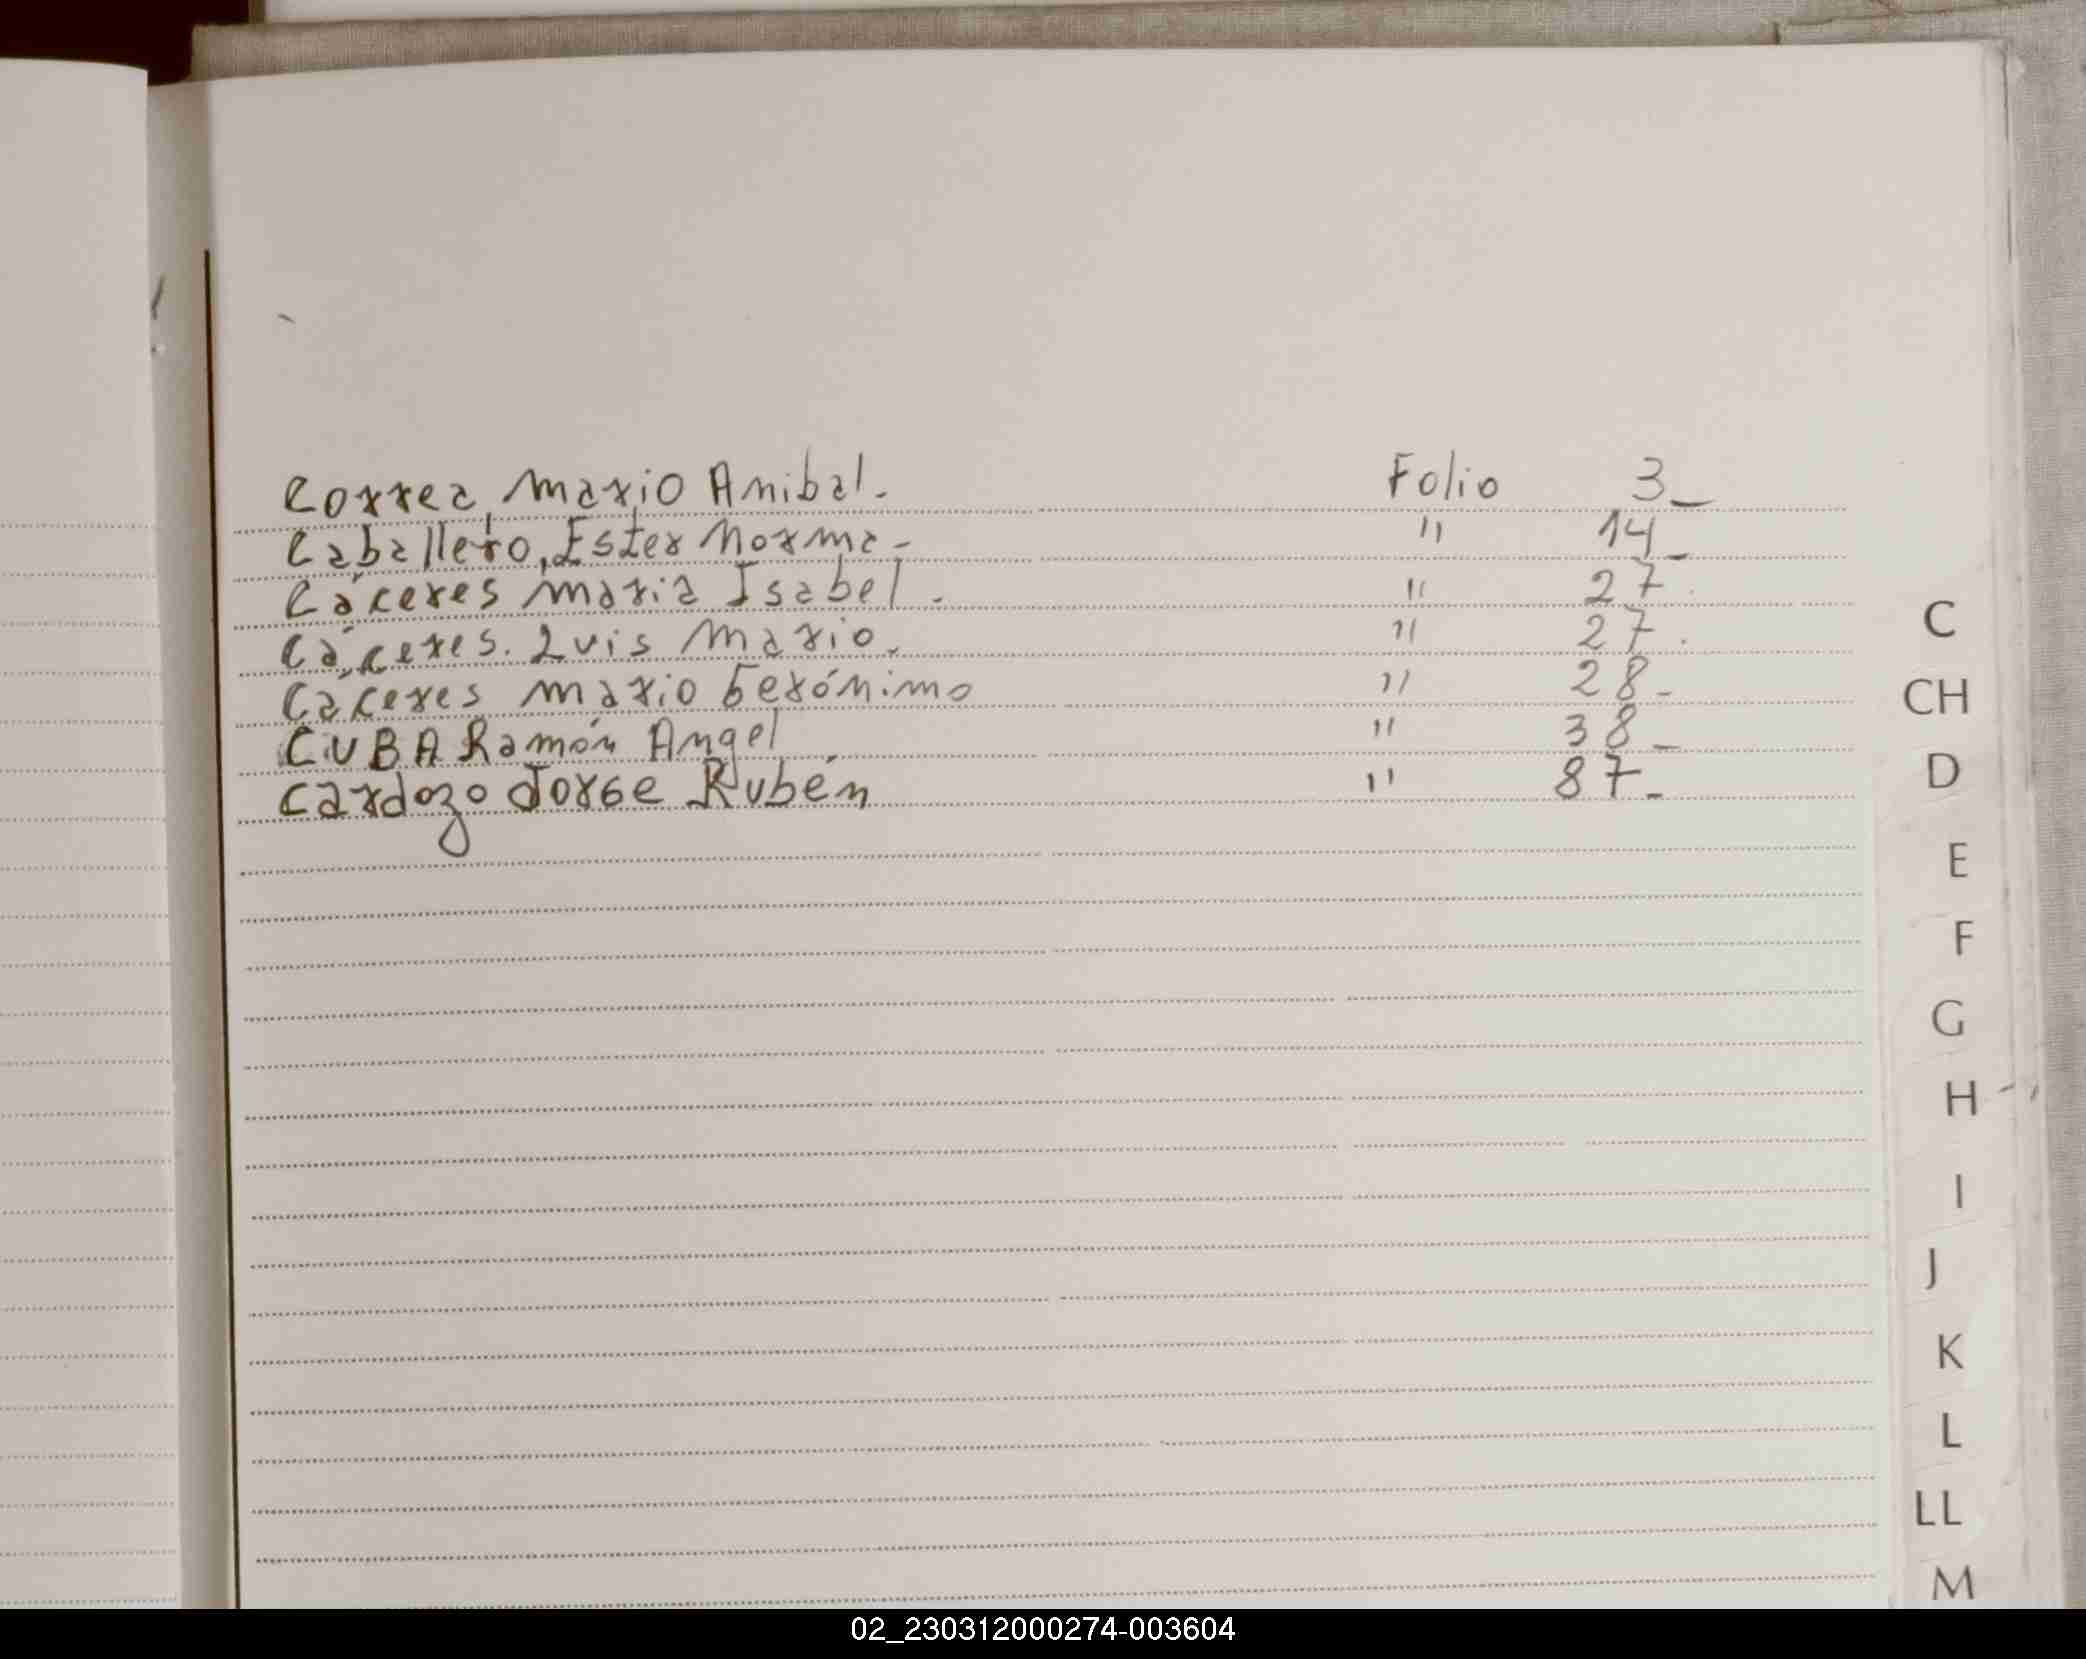 Correa, Mario Anibal. Folio 3_
Caballero, Ester Norma - " 14_
Cáceres Maria Isabel. " 27.
Cáceres. Luis Mario. " 27.
Cáceres Mario Gerónimo " 28-
CUBA Ramón Angel " 38_
Cardozo Jorge Rubén " 87-
C
CH
D
E
F
G
H
I
J
K
L
LL
M
02_230312000274-003604